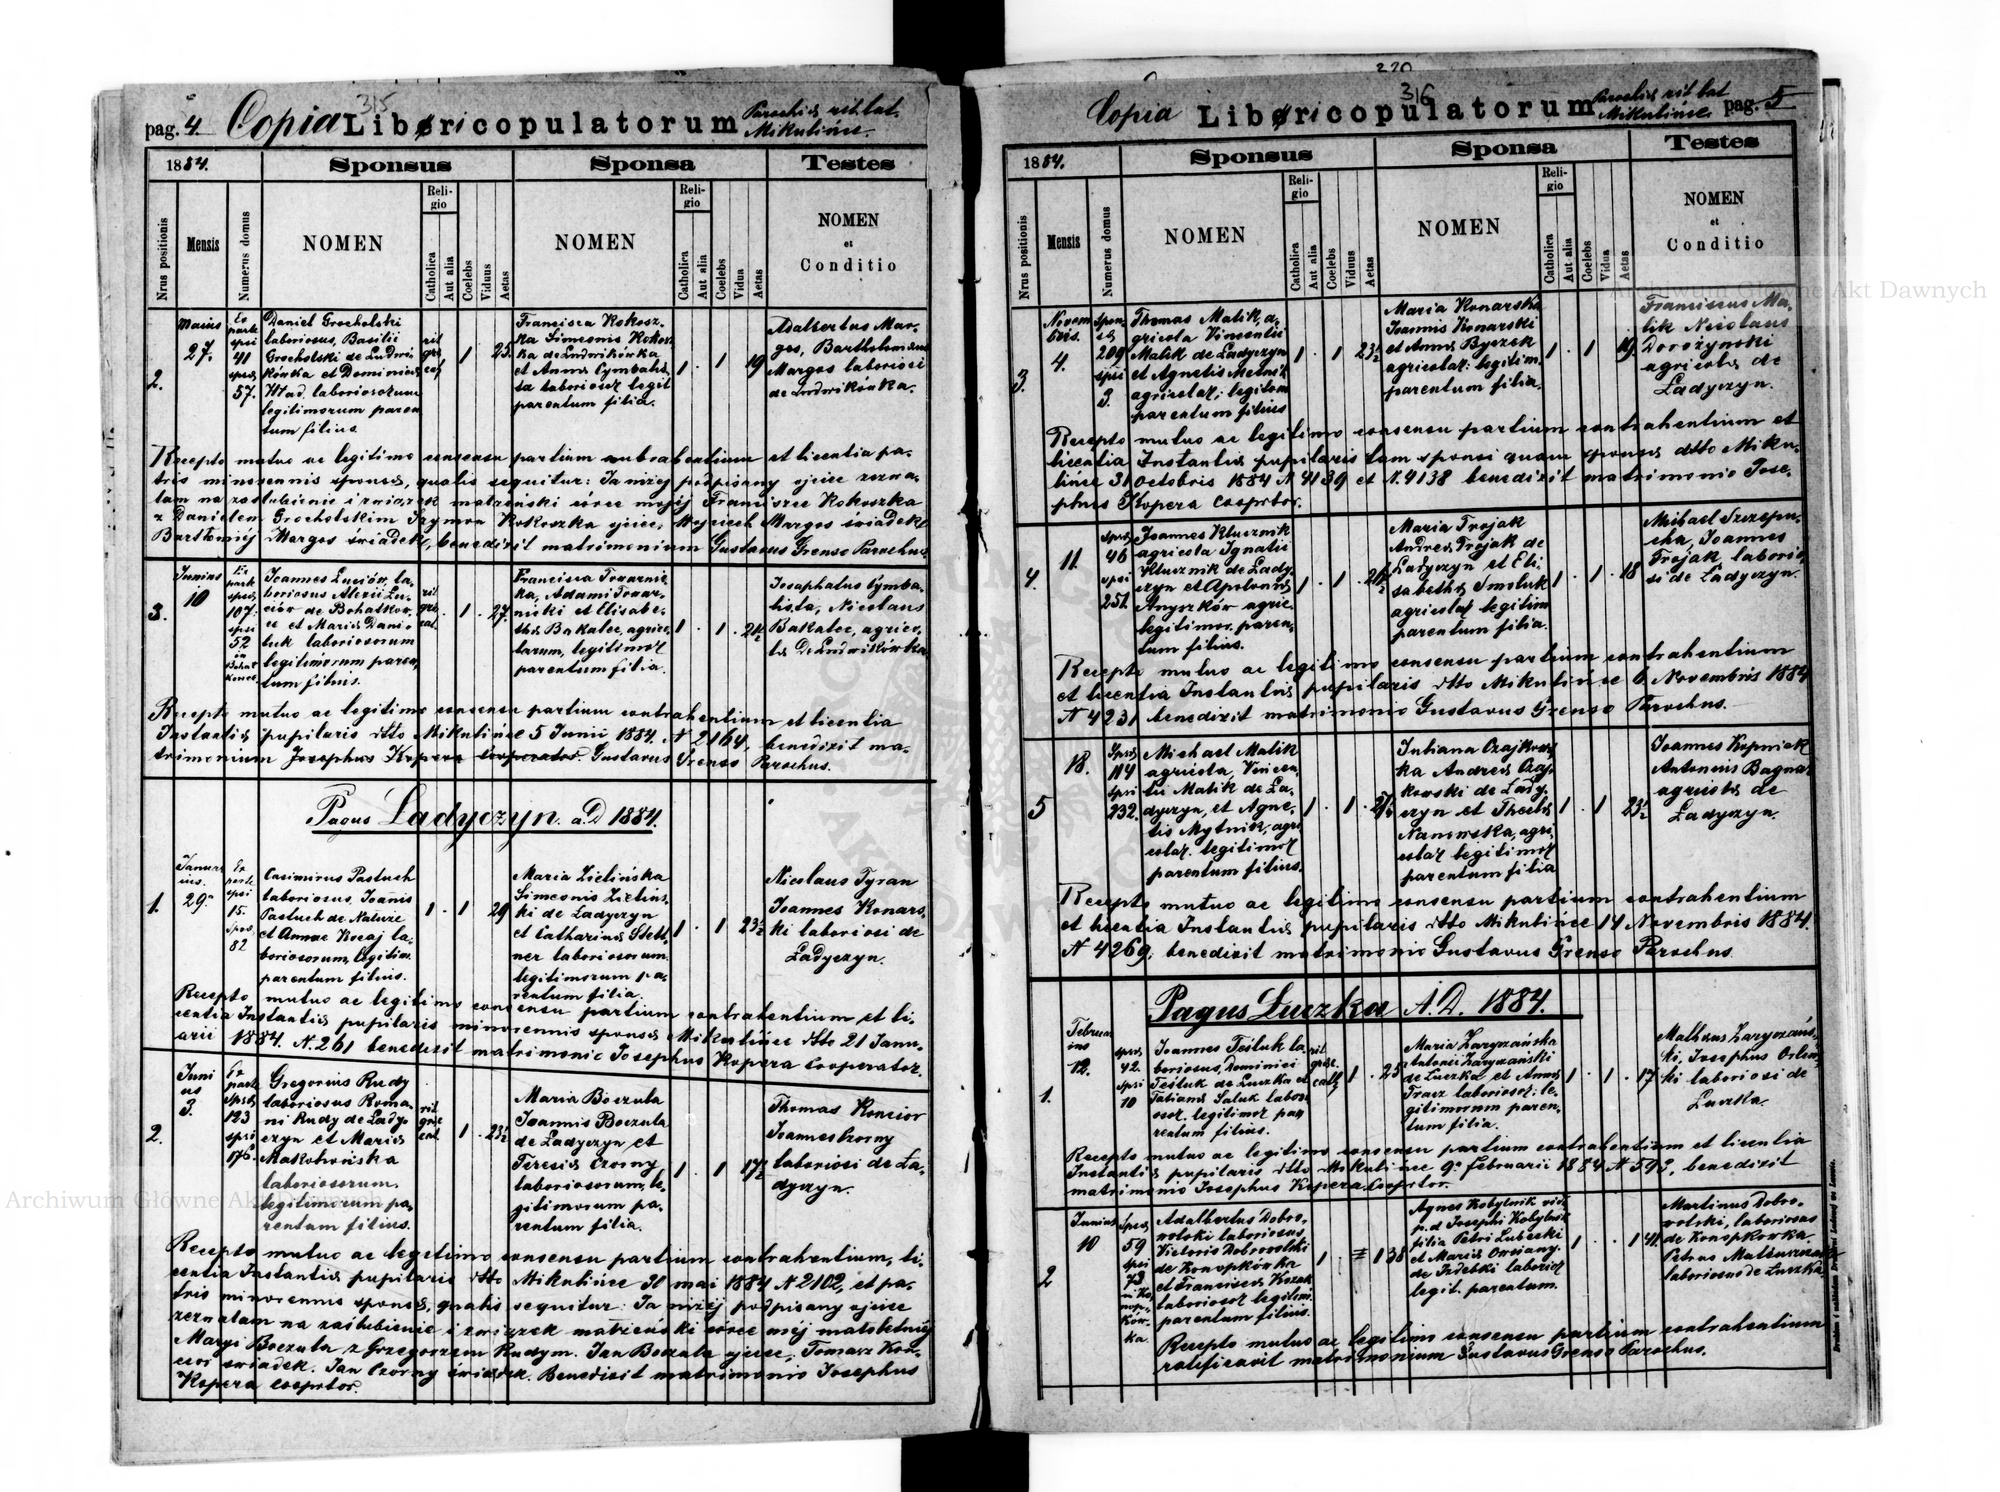 315
pag. 4 Copia Libri copulatorum Parochiæ rit. lat. Mikulińce
1884. Sponsus Sponsa Testes
Nrus positionis Mensis Numerus domus NOMEN Religio Catholica Aut alia Coelebs Viduus Aetas NOMEN Religio Catholica Aut alia Coelebs Vidua Aetas NOMEN et Conditio
2.
Maius
27.
Ex
parte
spsi
41
spsæ
57.
Daniel Grocholski
laboriosus, Basilii
Grocholski de Ludwi-
kówka et Dominicæ
Wlad. laboriosorum
legitimorum paren
tum filius.
rit
gre,
cat,
1
23.
Francisca Kokosz-
ka Simeonis Kokosz
ka de Ludwikówka
et Anna Cymbalis
ta laboriosor legit
parentum filia.
1 . 1 19
Adalbertus Mar-
gos, Bartholomaeus
Margos laboriosi
de Ludwikówka.
Recepto mutuo ac legitimo consensu partium contrahentium et licentia pa-
tris minorennis sponsæ, qualis sequitur: Ja niżej podpisany ojciec zezwa-
lam na zaślubienie i związek małżeński córce mojej Franciszce Kokoszka
z Danielem Grocholskim Szymon Kokoszka ojciec, Wojciech Margos świadek
Bartłomiej Margos świadek, benedixit matrimonium Gustavus Grenso Parochus.
3.
Junius
10
Ex
parte
spsæ
107.
spsi
52
in
Ioannes Luciów, la-
boriosus Alexii Lu-
ciów de Bohatkow-
ce et Maria Dani-
luk laboriosorum
legitimorum paren,
tum filius.
rit
gre.
cat.
1 . 27.
Francisca Towarnic-
ka, Adami Towar-
nicki et Elisabe-
tha Bakalec, agrico-
larum, legitimor
parentum filia.
1 . 1 . 24
Iosaphatus Cymba-
lista, Nicolaus
Bakalec, agrico-
la de Ludwikówka
Recepto mutuo ac legitimo consensu partium contrahentium et licentia
Instantiæ pupilaris dtto Mikulińce 5 Junii 1884. N 2164, benedixit ma-
trimonium Josephus Kopera cooperator. Gustavus Grenso Parochus.
Pagus Ladyczyn. a.D 1884.
1.
Janua-
ius.
29.
Ex
parte
spsi
15.
spsæ
82
Casimirus Pastuch
laboriosus, Ioanis
Pastuch de Nałuże
et Annae Kocaj la-
boriosorum, legitim.
parentum filius.
1 . 1 29
Maria Zielińska
Simeonis Zieliński
ki de Ladyczyn
et Catharina Stett
ner laboriosorum
legitimorum pa-
rentum filia.
1 . 1 23½
Nicolaus Tyran
Ioannes Konars-
ki laboriosi de
Ladyczyn.
Recepto mutuo ac legitimo consensu partium contrahentium et li-
centia Instantiæ pupilaris minorennis sponsæ Mikulińce dtto 21 Janu-
arii 1884. N. 261 benedixit matrimonio Josephus Kopera cooperator.
2.
Juni
us
3.
Ex
parte
spsæ
123
spsi
176.
Gregorius Rudy
laboriosus Roma-
ni Rudy de Lady-
czyn et Maria
Makohońska
laboriosorum,
legitimorum pa-
rentum filius.
rit
græ
cat
1 . 23½
Maria Boczula
Ioannis Boczula
de Ladyczyn et
Teresia Czorny
laboriosorum, le-
gitimorum pa-
rentum filia.
1 . 1 17½
Thomas Koncior
Ioannes Czorny
laboriosi de La-
dyczyn.
Recepto mutuo ac legitimo consensu partium contrahentium, li-
centia Instantiæ pupilaris dtto Mikulińce 30 mai 1884 N 2102, et pa-
tris minorennis sponsæ, qualis sequitur: Ja niżej podpisany ojciec
zezwalam na zaślubienie i związek małżeński córce mojej małoletniej
Maryi Boczula z Grzegorzem Rudym. Jan Boczula ojciec; Tomasz Kon-
cior świadek. Jan Czorny świadek. Benedixit matrimonio Josephus
Kopera cooprtor.
220
316
Copia Libri copulatorum Parochiæ rit lat Mikulińce pag. 5
1884. Sponsus Sponsa Testes
Nrus positionis Mensis Numerus domus NOMEN Religio Catholica Aut alia Coelebs Viduus Aetas NOMEN Religio Catholica Aut alia Coelebs Vidua Aetas NOMEN et Conditio
3.
Novem
bris.
4.
Spon-
sæ
209
spsi
3.
Thomas Malik, a-
gricola Vincentii
Malik de Ladyczyn
et Agnetis Metnik
agricolar; legitim
parentum filius
1 . 1 23½
Maria Konarska
Ioannis Konarski
et Anna Byczek
agricolar: legitim
parentum filia.
1 . 1 19.
Franciscus Ma-
lik Nicolaus
Dorożynski
agricola de
Ladyczyn.
Recepto mutuo ac legitimo consensu partium contrahentium et
licentia Instantiæ pupilaris tam sponsi quam sponsæ dtto Miku-
lińce 31 octobris 1884 N 4139 et N. 4138 benedixit matrimonio Jose-
phus Kopera cooprtor.
4.
11.
spsæ
46
spsi
251.
Ioannes Klucznik
agricola Ignatii
Klucznik de Lady-
czyn et Apolonia
Anyszków agric-
legitimor, paren,
tum filius.
1 . 1 . 24½
Maria Trojak
Andrea Trojak de
Ladyczyn et Eli-
sabetha Smoluk
agricolar legitim
parentum filia.
1 . 1 18
Mihael Szczepu-
cha, Ioannes
Trojak laborio-
si de Ladyczyn.
Recepto mutuo ac legitimo consensu partium contrahentium
et licentia Instantiæ pupilaris dtto Mikulińce 6 Novembris 1884
N 4231 benedixit matrimonio Gustavus Grenso Parochus.
5
18.
Spsæ
114
spsi
232.
Michael Malik
agricola, Vincen-
tii Malik de La-
dyczyn, et Agne-
tis Mytnik, agri
colar. legitimor
parentum filius.
1 . 1 .
Iuliana Czajkows-
ka Andrea Czaj-
kowski de Lady-
czyn et Thecla
Nanowska, agri-
colar legitimor
parentum filia
1 . 1 23½
Ioannes Kopniak
Antonius Bagnar
agricola de
Ladyczyn.
Recepto mutuo ac legitimo consensu partium contrahentium
et licentia Instantiæ pupilaris dtto Mikulińce 14 Novembris 1884.
N 4269, benedixit matrimonio Gustavus Grenso Parochus.
Pagus Łuczka A.D. 1884.
1.
Februa-
ius
12.
spsæ
42.
spsi
10
Ioannes Teśluk la-
boriosus, Dominici
Teśluk de Łuczka et
Tatiana Saluk labor-
osor. legitimor pa-
rentum filius.
rit
græ
cath
1 . 25
Maria Zaryczańska
Antonii Zaryczański
de Łuczka et Anna
Tracz laborioso; le-
gitimorum paren-
tum filia.
1 . 1 . 17
Matheus Zaryczańs-
ki, Josephus Orlow-
ki laboriosi de
Łuczka.
Recepto mutuo ac legitimo consensu partium contrahentium et licentia
Instantiæ pupilaris dtto Mikulińce 9. februarii 1884 N 593, benedixit
matrimonio Josephus Kopera cooprtor.
2
Junius
10
spsæ
59
spsi
73
in Ko-
nop-
ków-
ka
Adalbertus Dobro-
wolski laboriosus,
Victoris Dobrowolski
de Konopkówka
et Francisca Kozak
laboriosor legitim.
parentum filius.
1 . 1 38
Agnes Kobylnik vid.
p.d Josephi Kobylnik
filia Petri Lubecki
et Maria Owsiany
de Izdebki laborior
legit. parentum.
1 . . 1 41
Martinus Dobro-
wolski, laboriosus
de Konopkówka.
Petrus
laboriosus de Łuczka
Recepto mutuo ac legitimo consensu partium contrahentium
ratificavit matrimonium Gustavus Grenso Parochus.
Archiwum Główne Akt Dawnych
Archiwum Główne Akt Dawnych